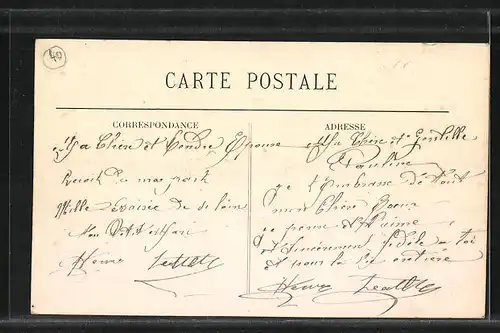 40
CARTE POSTALE
CORRESPONDANCE
Ma Chère et Tendre Epouse
Reçoit de ma part
Mille de si loin
Ton
Henri
ADRESSE
Ma Chère et Gentille
Pauline
je t'Embrasse de tout
mon Chère Coeur
je pense et t'aime
et Sincèrement fidèle a toi
et pour la vie entière
Henri